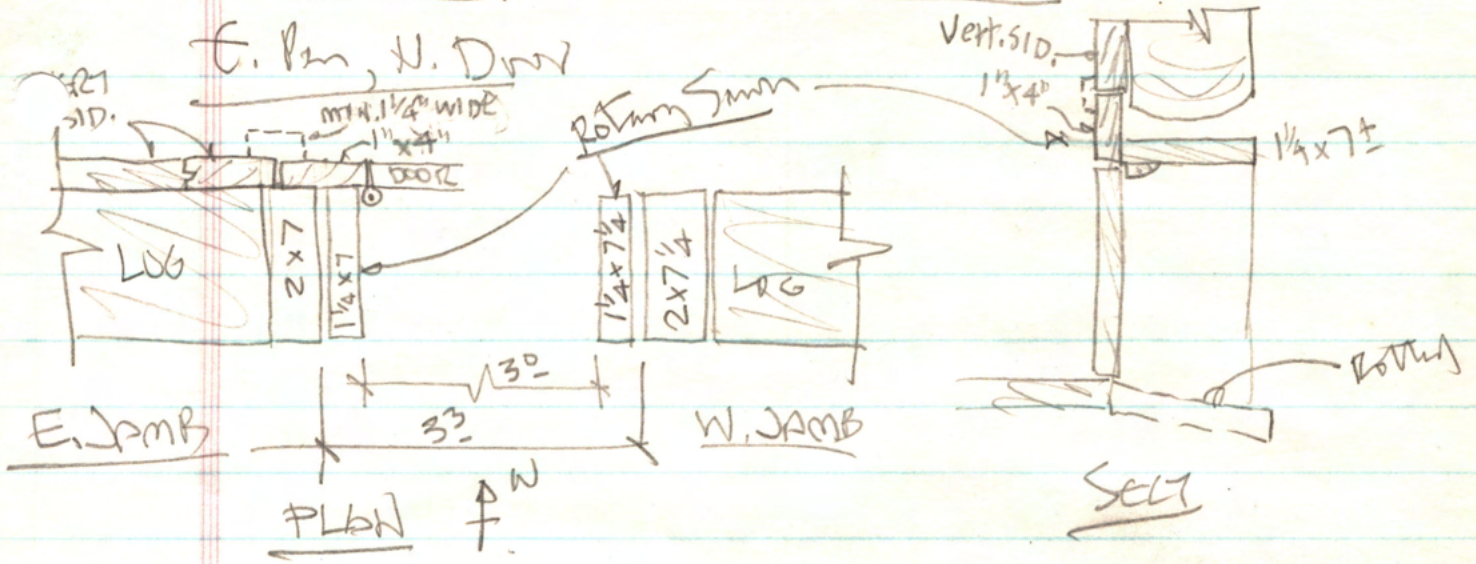 E. Pen, N. Door
SID.
min. 1 1/4" WIDE
1" x 4"
DOOR
Rotary Sawn
LOG
2 x 7
1 1/4 x 7
1 1/4 x 7 1/4
2 x 7 1/4
LOG
3⁰
3³
E. JAMB
W. JAMB
PLAN
N
Vert. SID.
1" x 4"
1 1/4 x 7 ±
Rotted
SECT